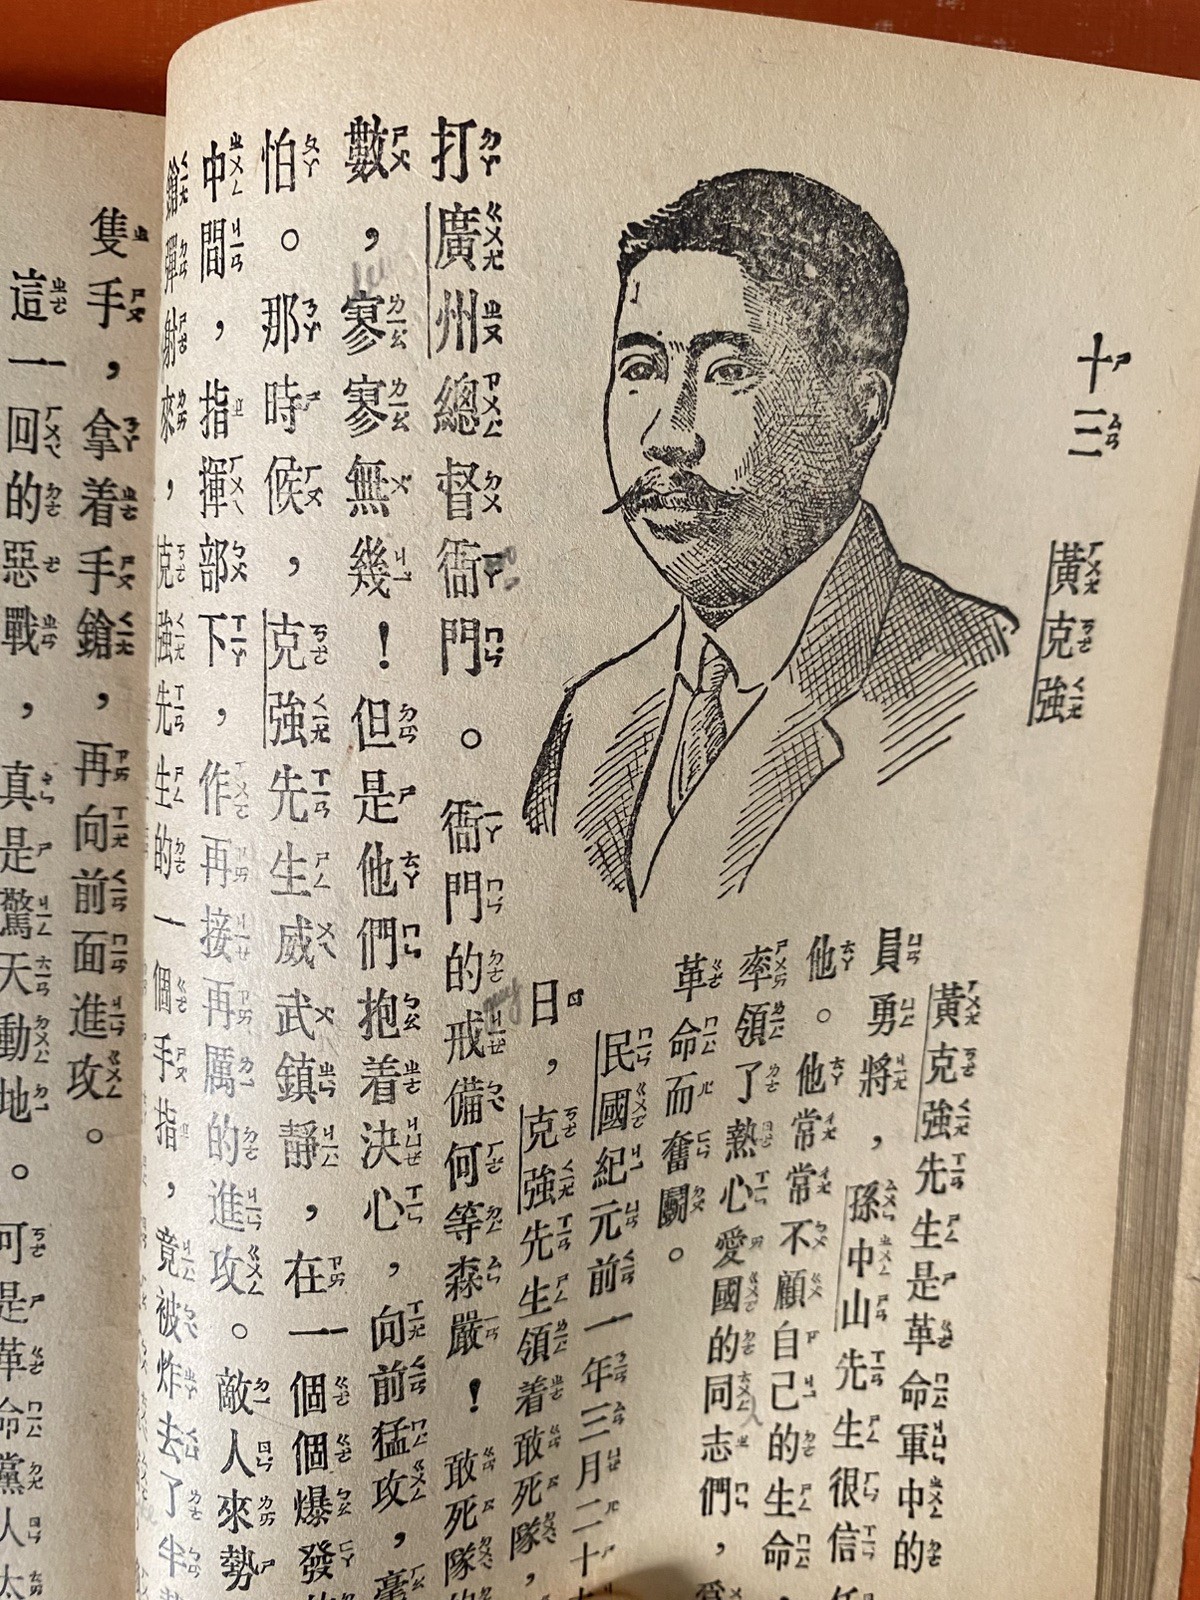 十三　黃克強
黃克強先生是革命軍中的
員勇將，孫中山先生很信
他。他常常不顧自己的生命，
率領了熱心愛國的同志們，
革命而奮鬭。
民國紀元前一年三月二十
日，克強先生領着敢死隊，
打廣州總督衙門。衙門的戒備何等森嚴！敢死隊的
數，寥寥無幾！但是他們抱着決心，向前猛攻，毫
怕。那時候，克強先生威武鎮靜，在一個個爆發
中間，指揮部下，作再接再厲的進攻。敵人來勢
鎗彈射來，克強先生的一個手指，竟被炸去了半
隻手，拿着手鎗，再向前面進攻。
這一回的惡戰，真是驚天動地。可是革命黨人太